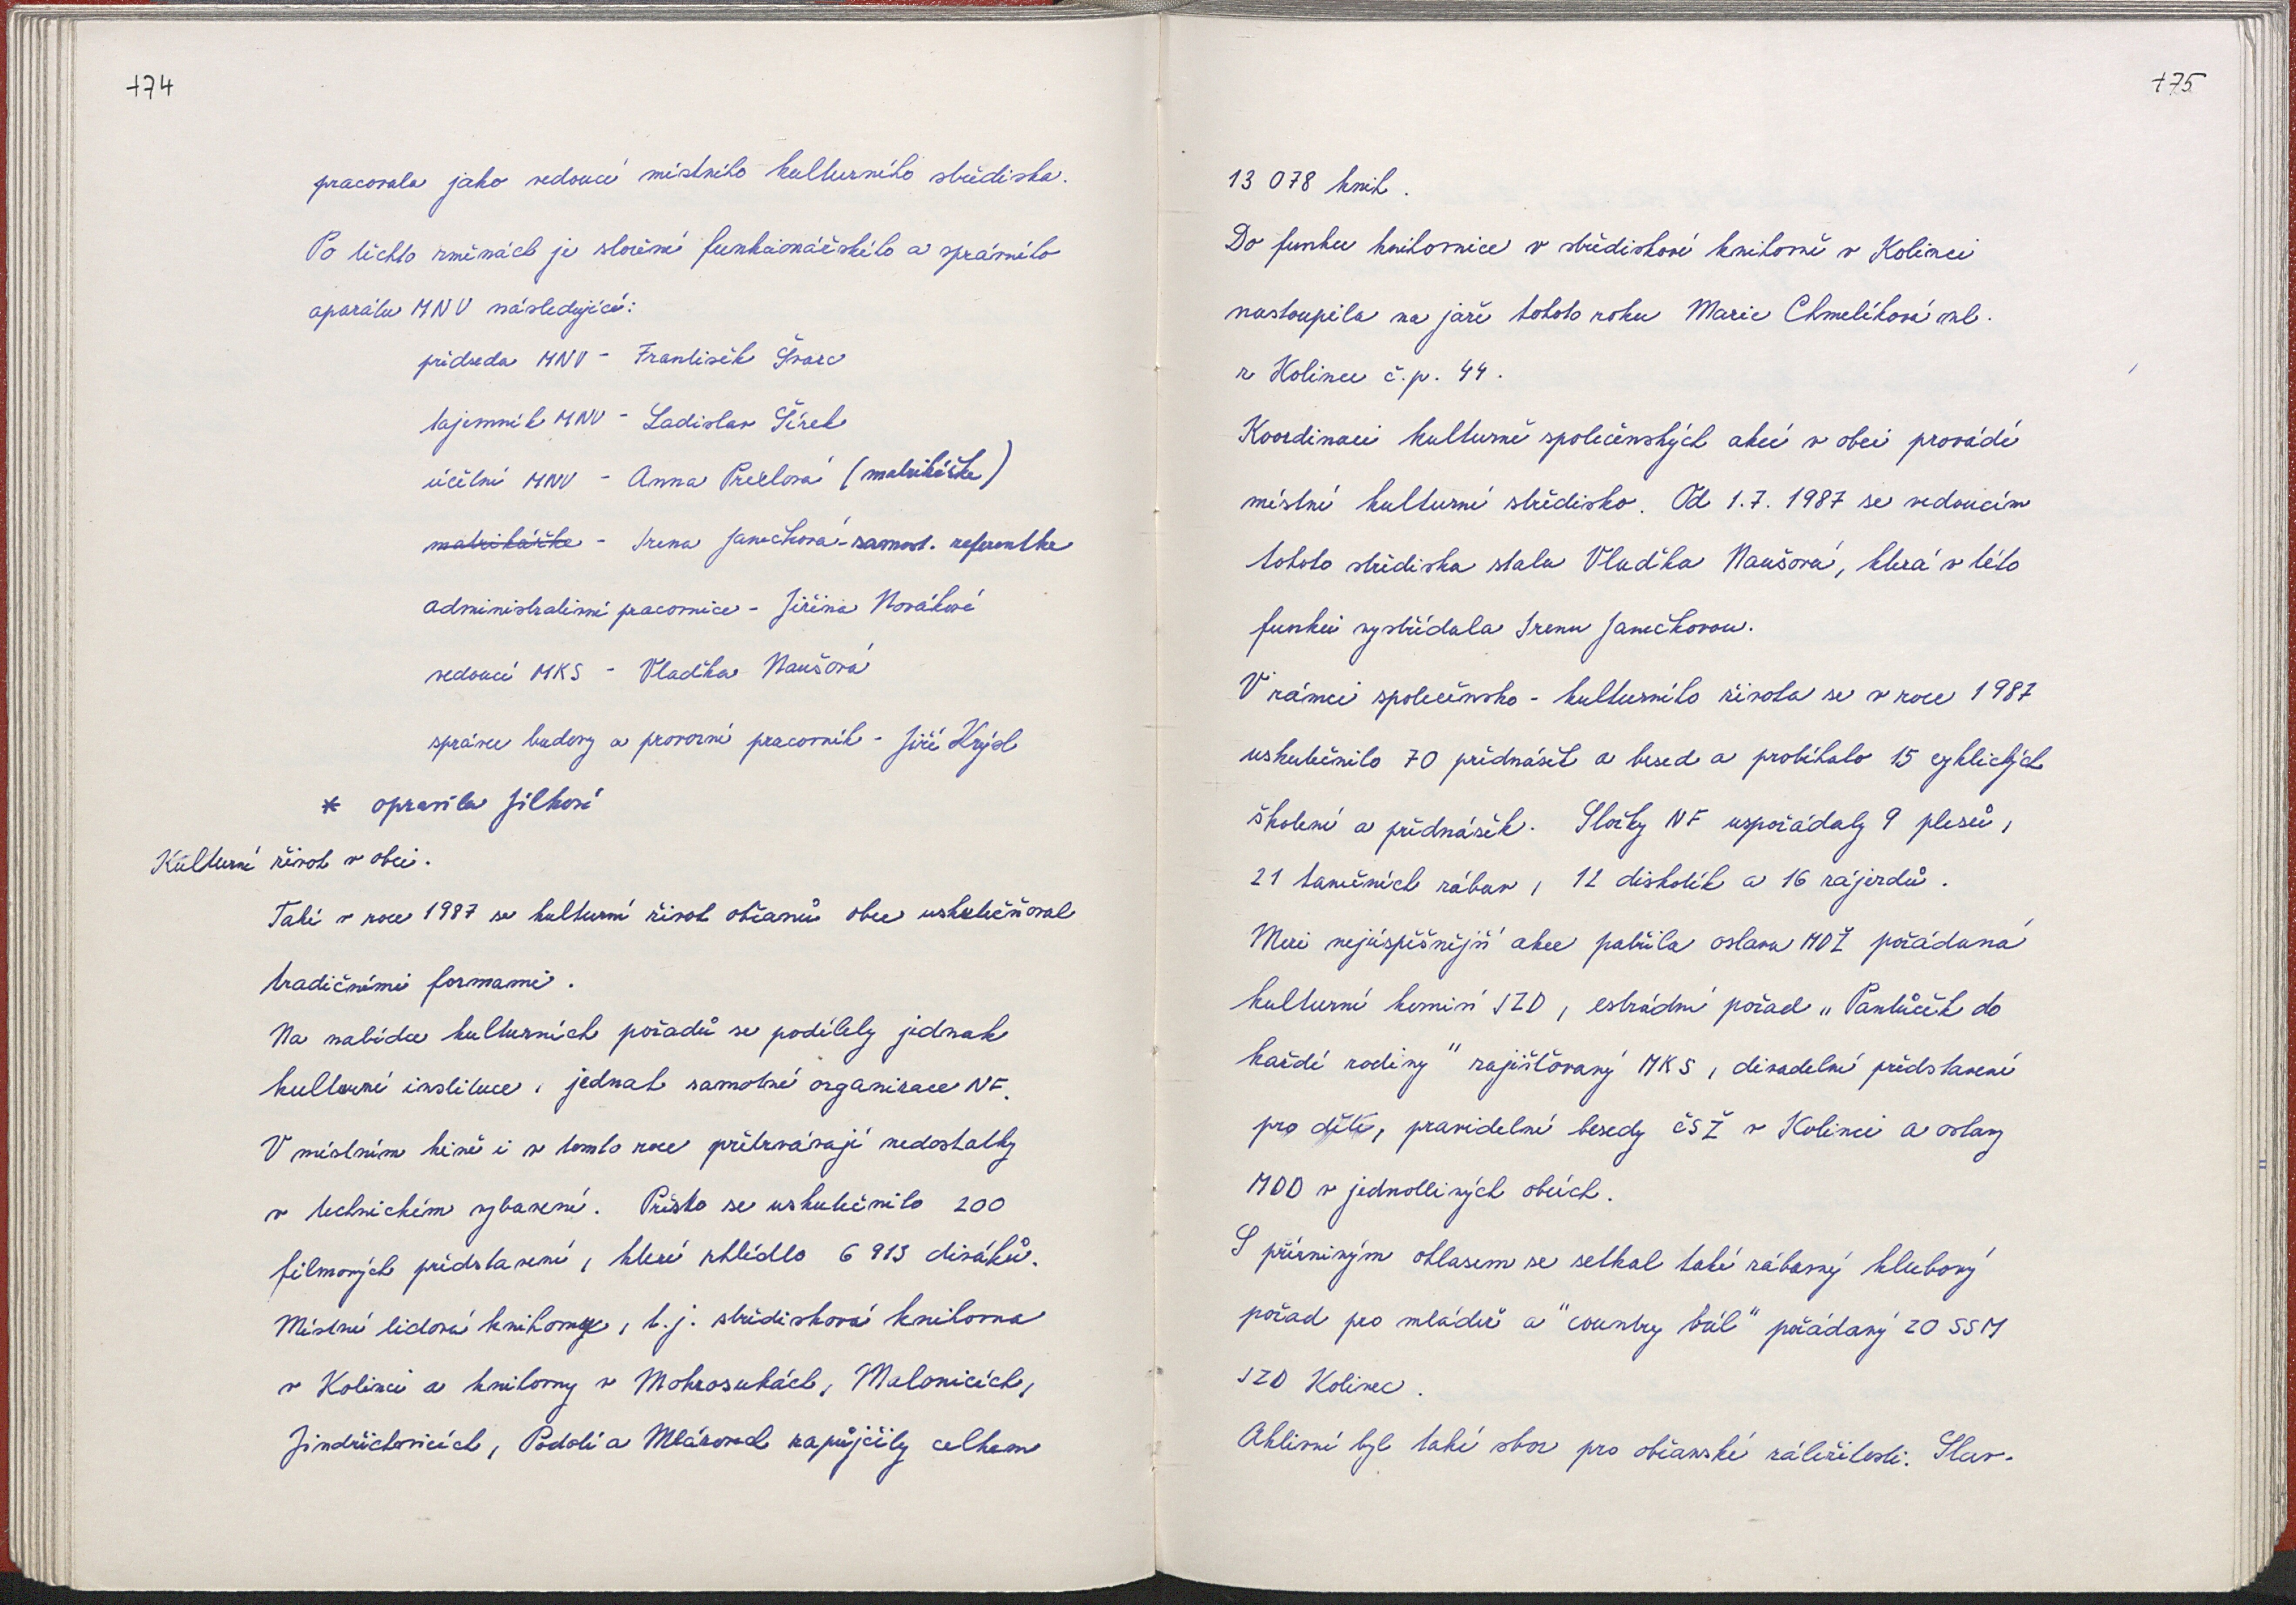 174
pracovala jako vedoucí místního kulturního střediska.
Po těchto změnách je složení funkcionářského a správního
aparátu MNV následující:
předseda MNV - František Švarc
tajemník MNV - Ladislav Šírek
účetní MNV - Anna Prexlová (matrikářka)
matrikářka - Irena Janečková - samost. referentka
administrativní pracovnice - Jiřina Nováková
vedoucí MKS - Vlaďka Naušová
správce budovy a provozní pracovník - Jiří Krýsl
* opravila Jílková
Kulturní život v obci.
Také v roce 1987 se kulturní život občanů obce uskutečňoval
tradičními formami.
Na nabídce kulturních pořadů se podílely jednak
kulturní instituce, jednak samotné organizace NF.
V místním kině i v tomto roce přetrvávají nedostatky
v technickém vybavení. Přesto se uskutečnilo 200
filmových představení, které shlédlo 6 913 diváků.
Místní lidové knihovny, t.j. středisková knihovna
v Kolinci a knihovny v Mokrosukách, Malonicích,
Jindřichovicích, Podolí a Mlázovech zapůjčily celkem
175
13 078 knih.
Do funkce knihovnice v střediskové knihovně v Kolinci
nastoupila na jaře tohoto roku Marie Chmelíková ml.
z Kolince č.p. 44.
Koordinaci kulturně společenských akcí v obci provádí
místní kulturní středisko. Od 1.7. 1987 se vedoucím
tohoto střediska stala Vlaďka Naušová, která v této
funkci vystřídala Irenu Janečkovou.
V rámci společensko - kulturního života se v roce 1987
uskutečnilo 70 přednášek a besed a probíhalo 15 cyklických
školení a přednášek. Složky NF uspořádaly 9 plesů,
21 tanečních zábav, 12 diskoték a 16 zájezdů.
Mezi nejúspěšnější akce patřila oslava MDŽ pořádaná
kulturní komisí JZD, estrádní pořad „Pantůček do
každé rodiny" zajišťovaný MKS, divadelní představení
pro děti, pravidelné besedy ČSŽ v Kolinci a oslavy
MDD v jednotlivých obcích.
S příznivým ohlasem se setkal také zábavný klubový
pořad pro mládež a "country bál" pořádaný ZO SSM
JZD Kolinec.
Aktivní byl také sbor pro občanské záležitosti. Slav-